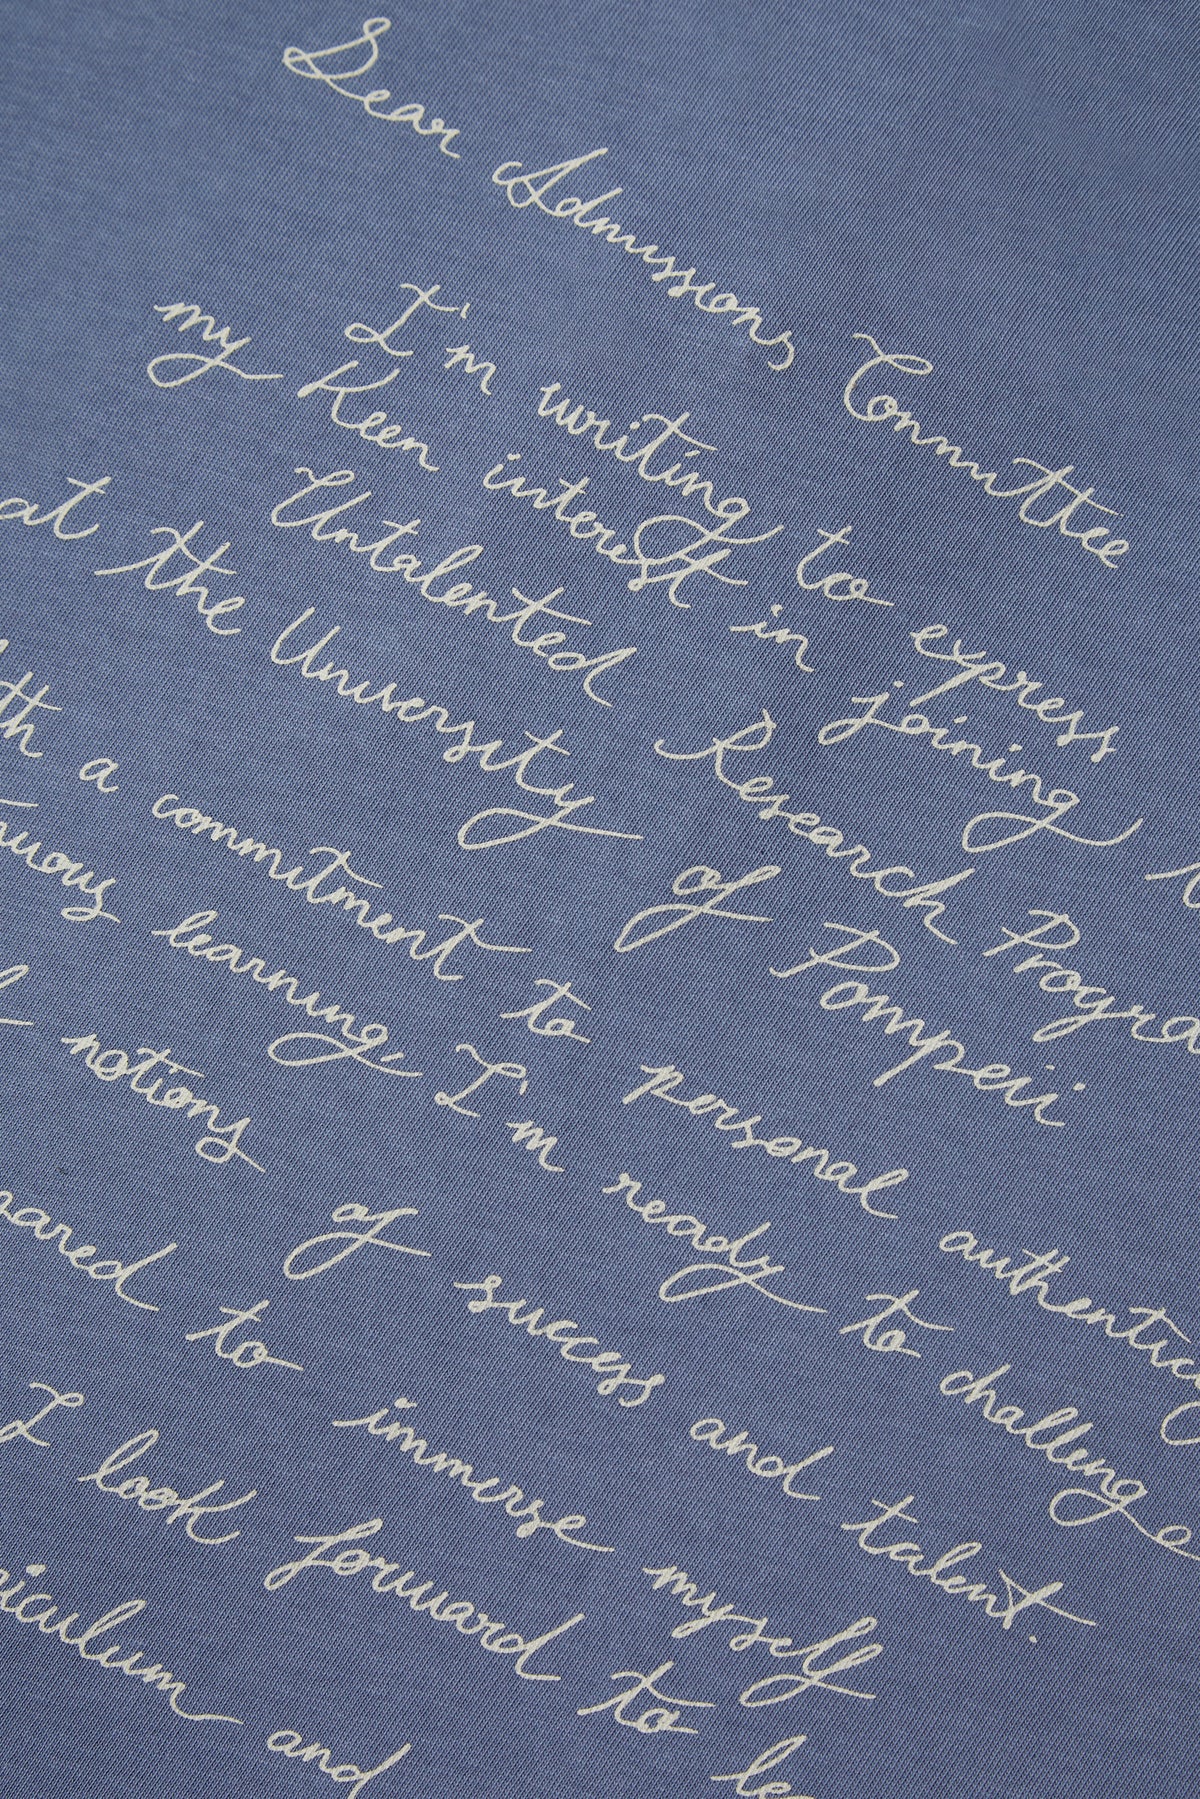 Dear Admissions Committee
I'm writing to express
my Keen interest in joining
Untalented Research Progra
at the University of Pompeii
th a commitment to personal authentic
nuous learning, I'm ready to challenge
notions of success and talent.
pared to immerse myself
I look forward to le
riculum and